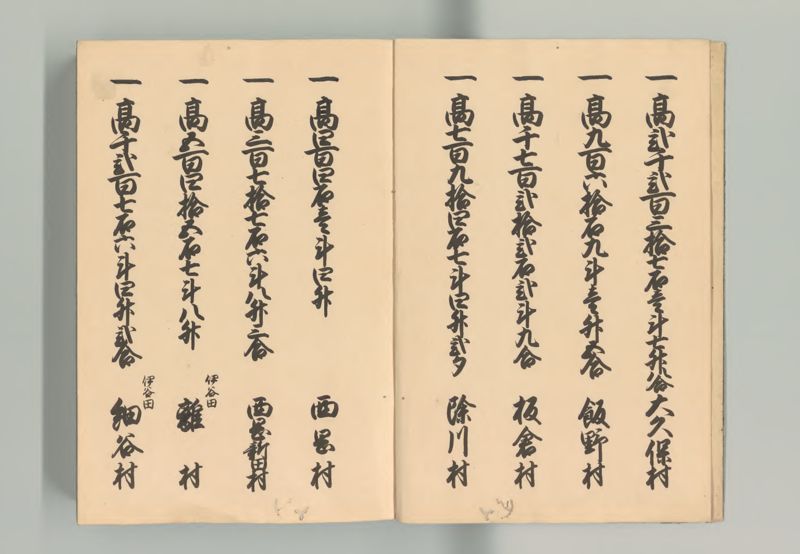 一 高弐千弐百三拾七石壱斗七升八合 大久保村
一 高九百六拾石九斗壱升五合 飯野村
一 高千七百弐拾弐石弐斗九合 板倉村
一 高七百九拾四石七斗四升弐夕 除川村
一 高四百四石壱斗四升 西岡村
一 高三百七拾七石六斗八升二合 西岡新田村
伊谷田
一 高五百四拾五石七斗八升 離村
伊谷田
一 高千弐百七石六斗四升弐合 細谷村